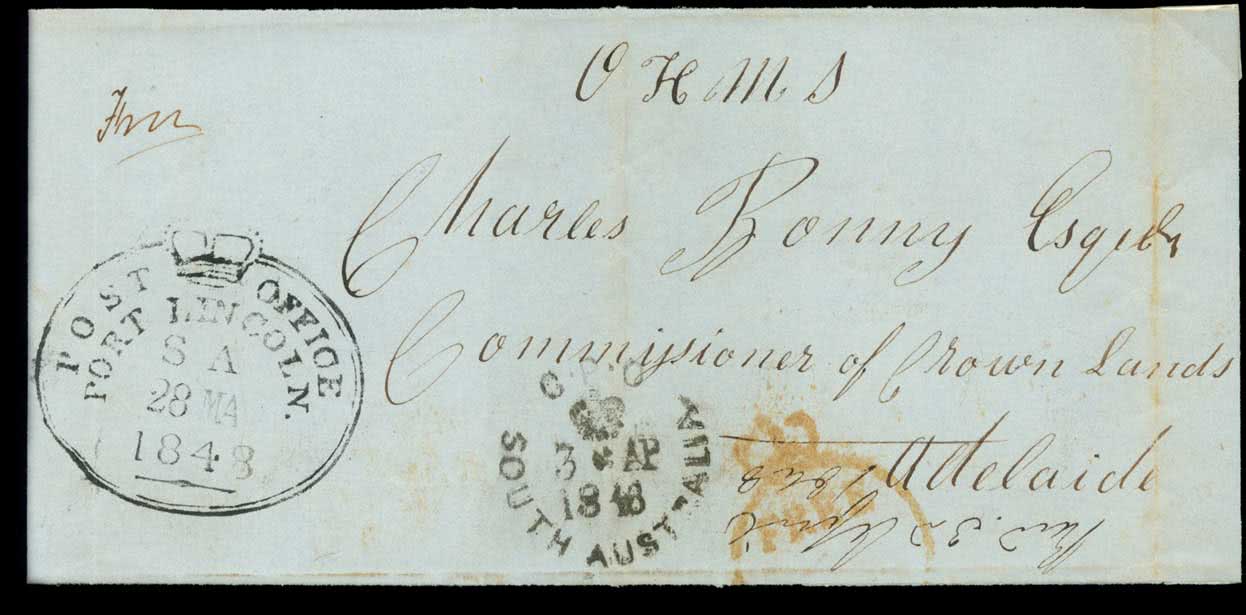 O H M S
Free
Charles Bonny Esqre
Commissioner of Crown Lands
Adelaide
POST OFFICE
PORT LINCOLN.
S A
28 MA
1848
G.P.O
3 AP
1848
SOUTH AUSTRALIA
FREE
Recd. 3d April
1848